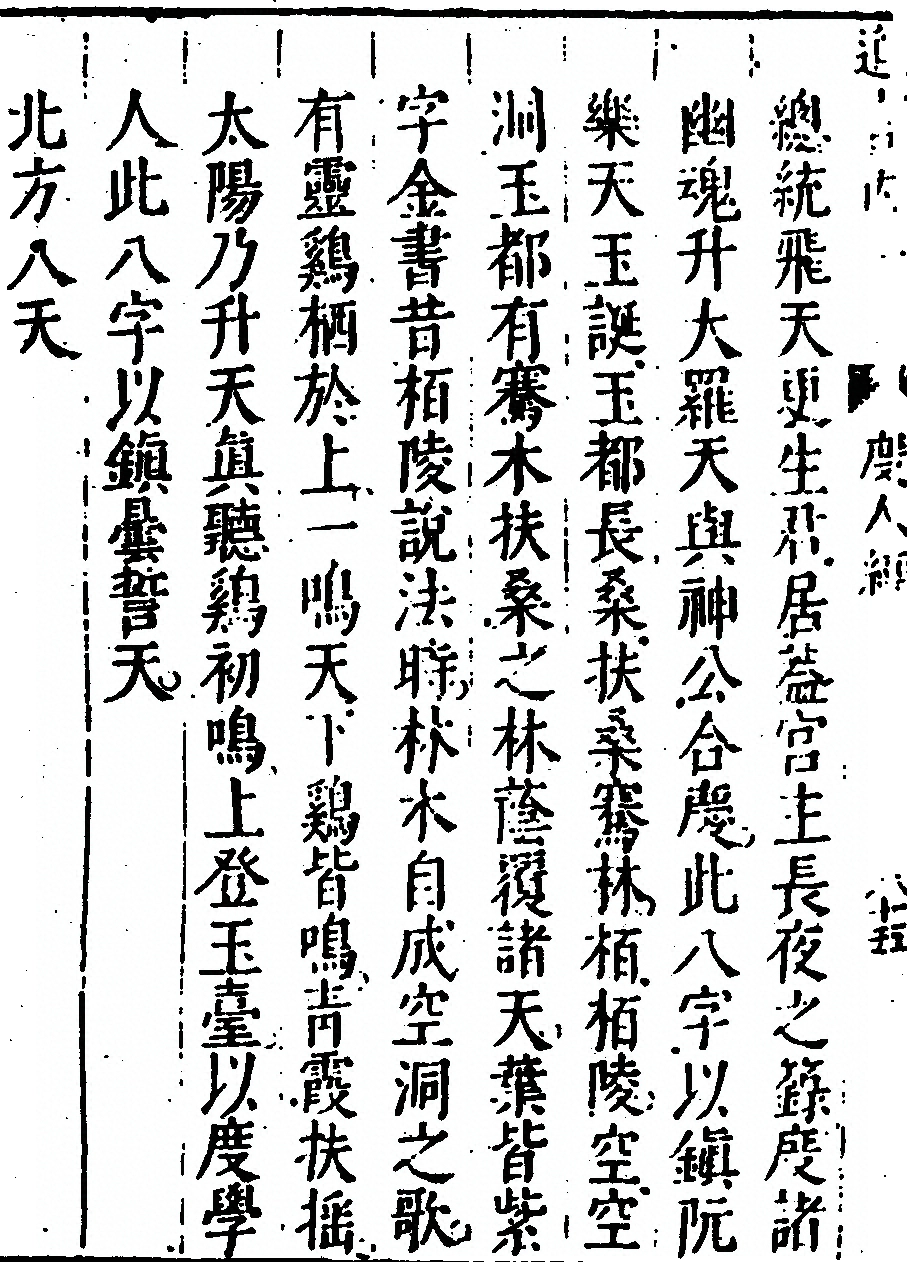 度人經
總統飛天更生君居蓋宮主長夜之籙度諸
幽魂升大羅天與神公合慶此八字以鎮阮
樂天玉誕玉都長桑扶桑騫林栢栢陵空空
洞玉都有騫木扶桑之林蔭覆諸天葉皆紫
字金書昔栢陵說法時林木自成空洞之歌
有靈鷄栖於上一鳴天下鷄皆鳴青霞扶搖
太陽乃升天眞聽鷄初鳴上登玉臺以度學
人此八字以鎮曇誓天
北方八天